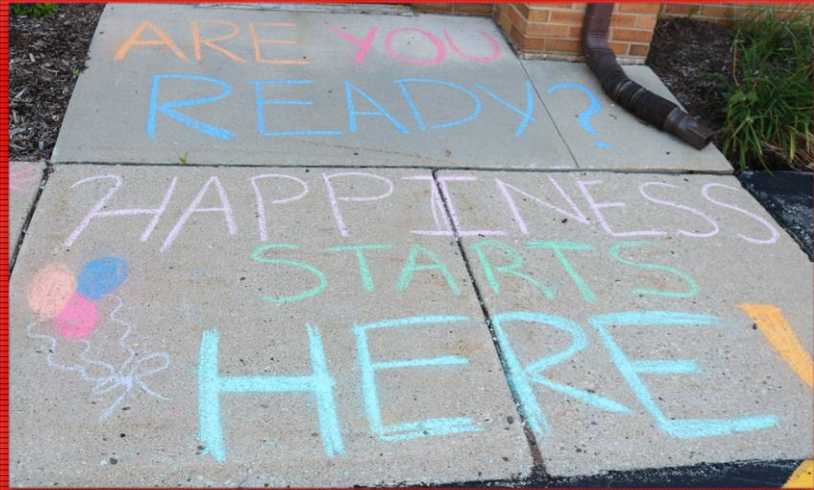 ARE YOU
READY?
HAPPINESS
STARTS
HERE!